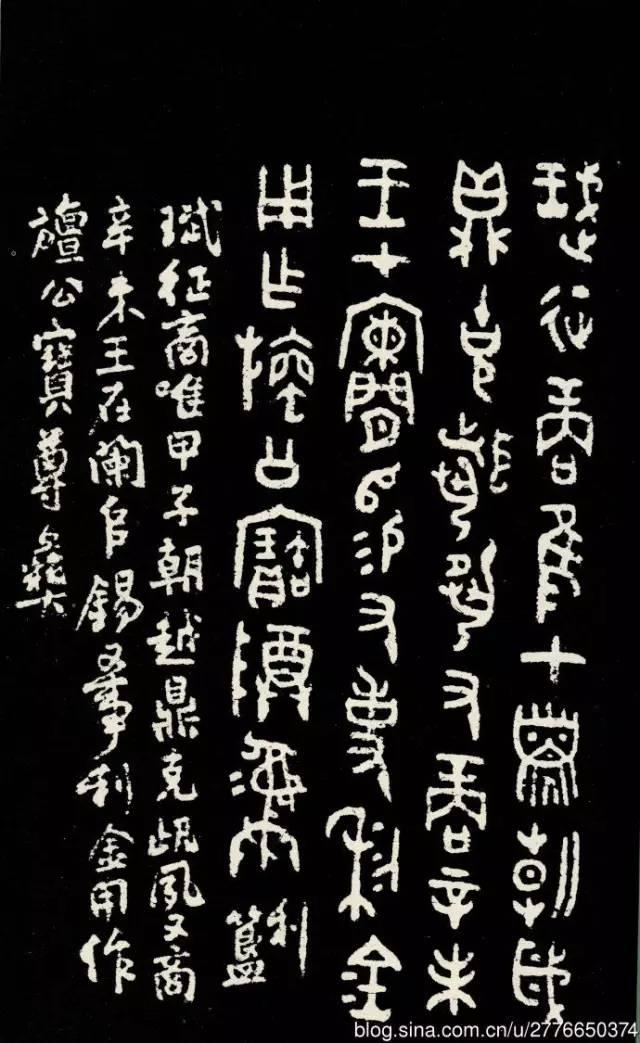 珷征商隹甲子朝歲
鼎克聞夙又商辛未
王才闌𠂤易又事利金
用乍旜公寶尊彝
利簋
珷征商唯甲子朝越鼎克夙又商
辛未王在闌𠂤錫又事利金用作
檀公寶尊彝
blog.sina.com.cn/u/2776650374